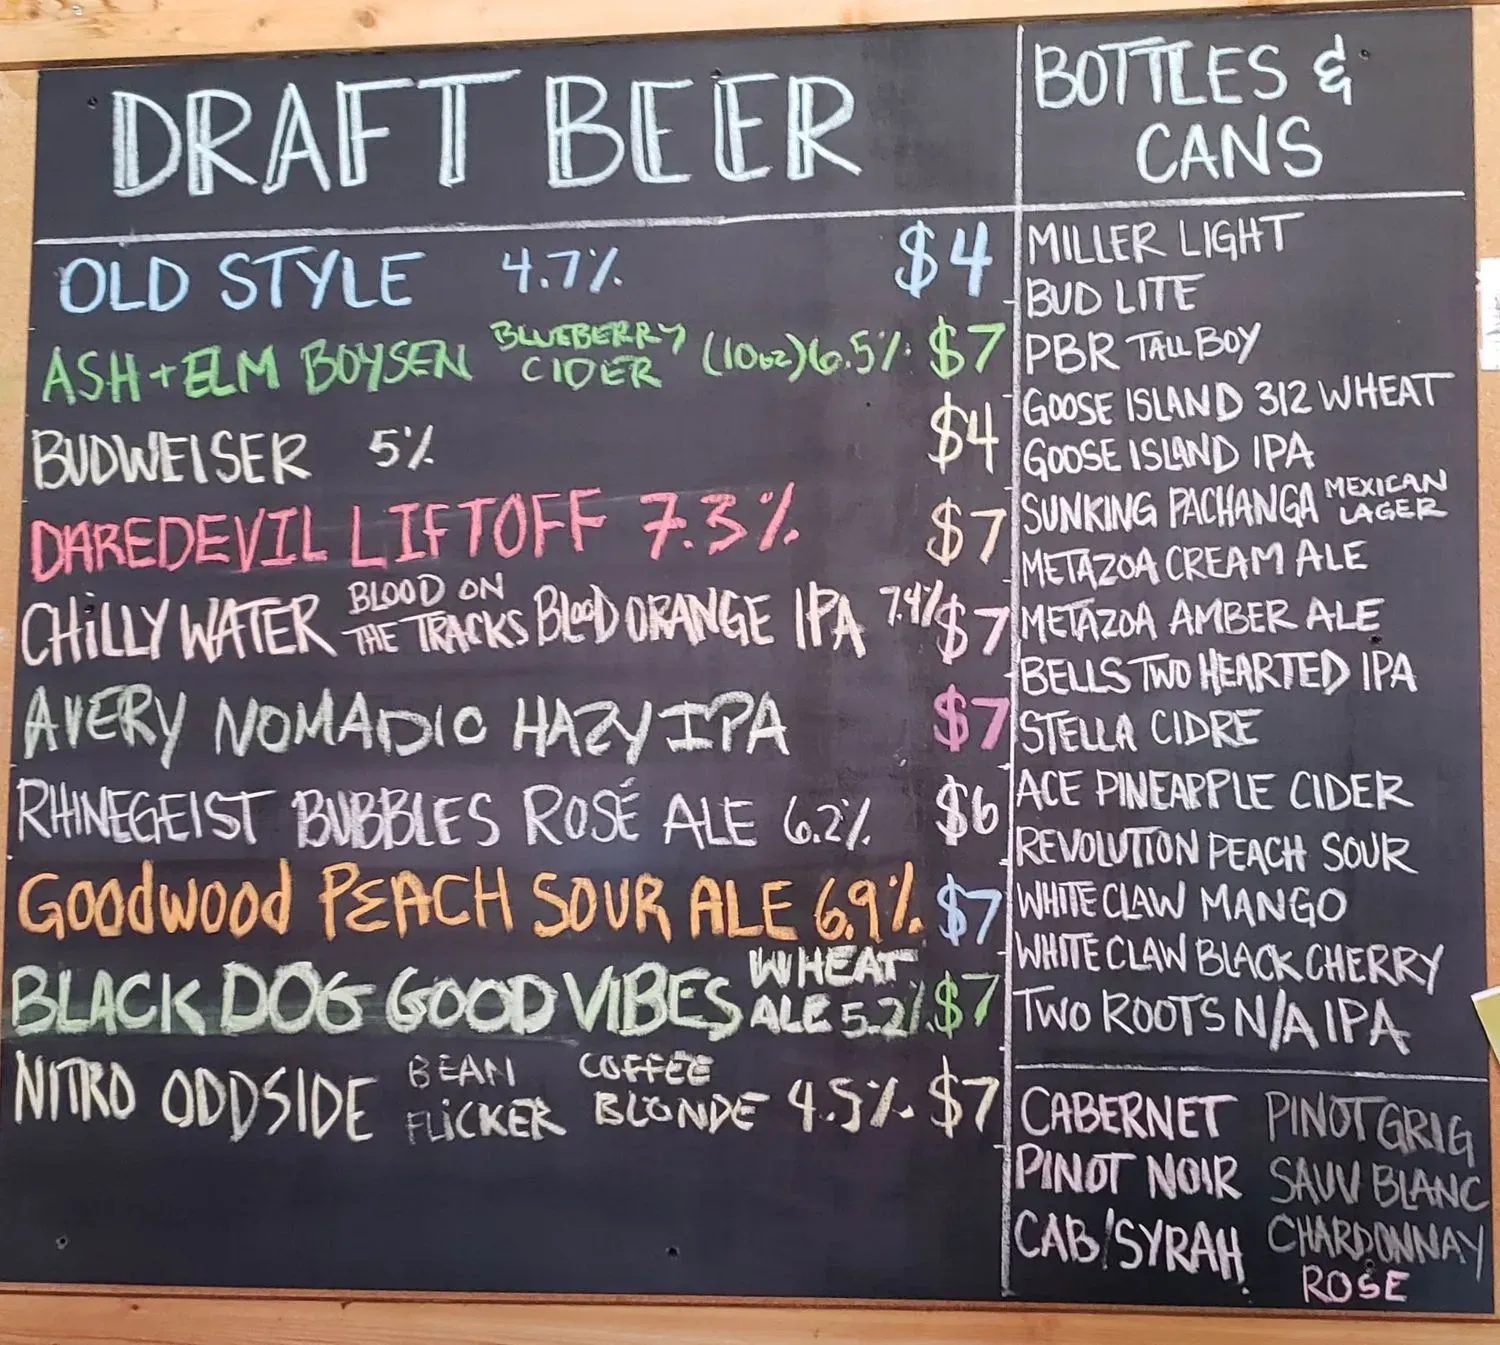 DRAFT BEER
OLD STYLE 4.7% $4
ASH + ELM BOYSEN BLUEBERRY CIDER (10oz) 6.5% $7
BUDWEISER 5% $4
DAREDEVIL LIFTOFF 7.3% $7
CHILLY WATER BLOOD ON THE TRACKS BLOOD ORANGE IPA 7.4% $7
AVERY NOMADIC HAZY IPA $7
RHINEGEIST BUBBLES ROSÉ ALE 6.2% $6
GOODWOOD PEACH SOUR ALE 6.9% $7
BLACK DOG GOOD VIBES WHEAT ALE 5.2% $7
NITRO ODDSIDE BEAN FLICKER COFFEE BLONDE 4.5% $7
BOTTLES &
CANS
MILLER LIGHT
BUD LITE
PBR TALL BOY
GOOSE ISLAND 312 WHEAT
GOOSE ISLAND IPA
SUNKING PACHANGA MEXICAN LAGER
METAZOA CREAM ALE
METAZOA AMBER ALE
BELLS TWO HEARTED IPA
STELLA CIDRE
ACE PINEAPPLE CIDER
REVOLUTION PEACH SOUR
WHITE CLAW MANGO
WHITE CLAW BLACK CHERRY
TWO ROOTS N/A IPA
CABERNET PINOT GRIG
PINOT NOIR SAUV BLANC
CAB/SYRAH CHARDONNAY
ROSE